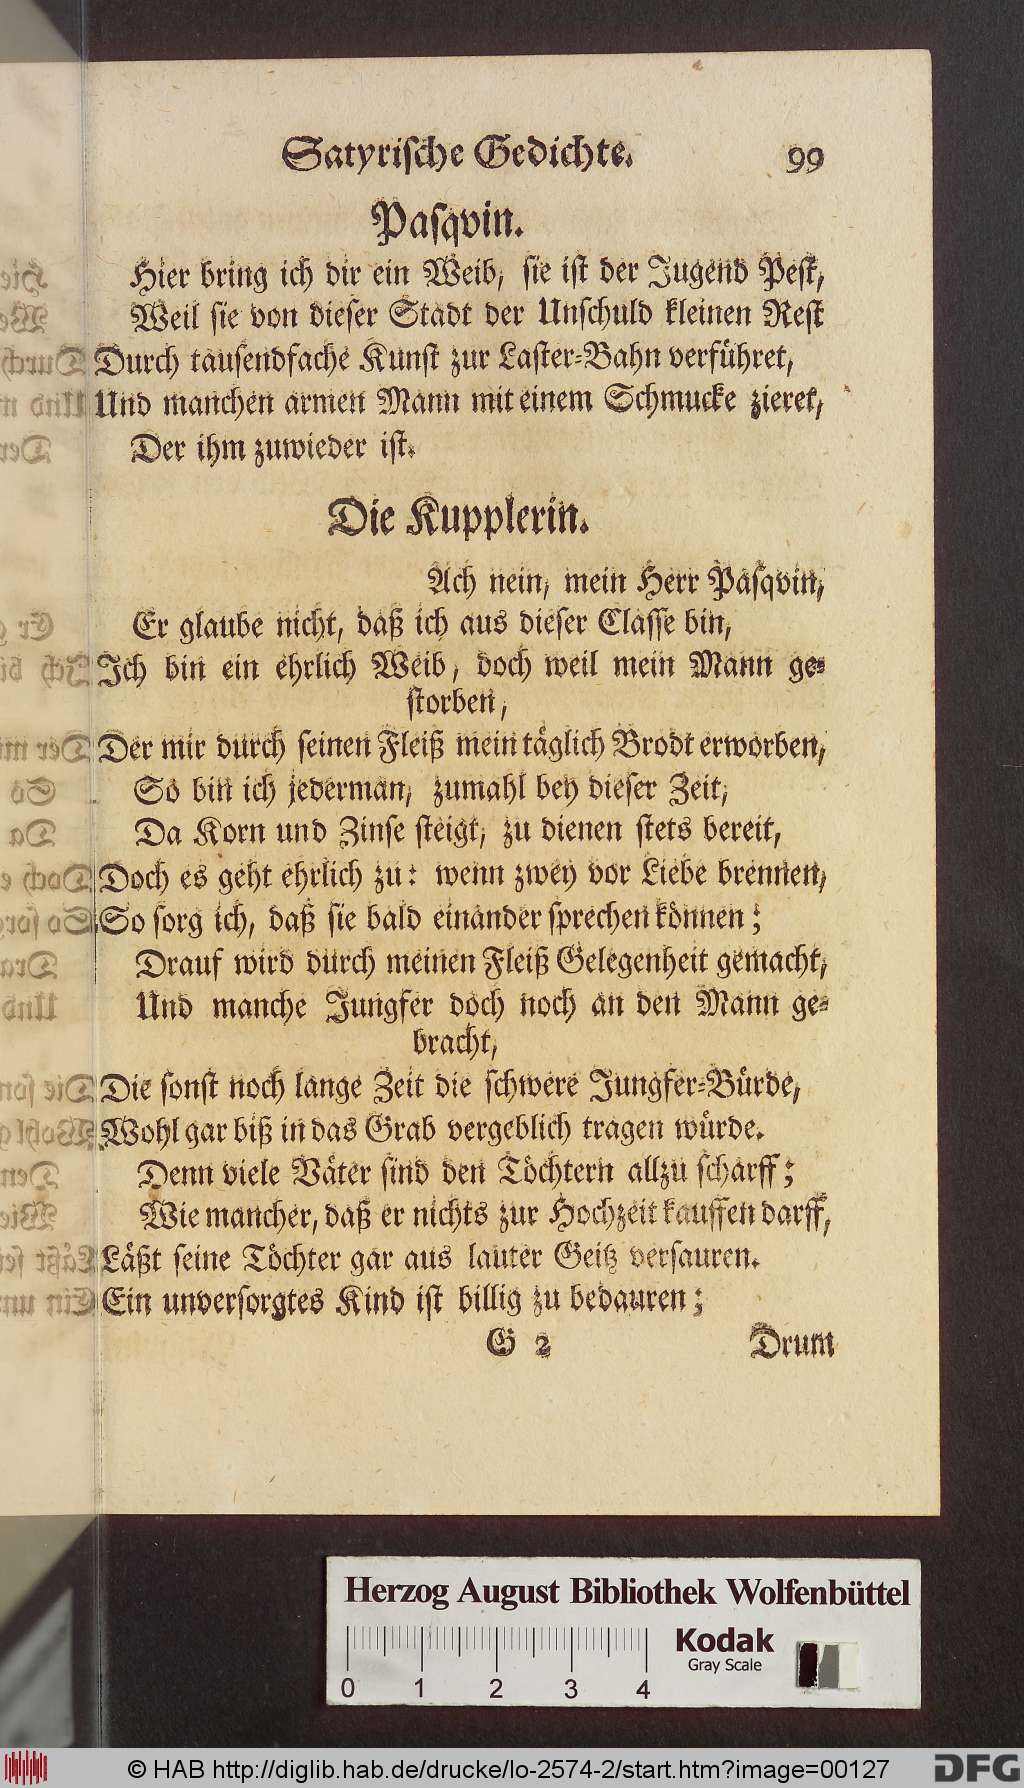 Satyriſche Gedichte. 99
Paſqvin.
Hier bring ich dir ein Weib, ſie iſt der Jugend Peſt,
Weil ſie von dieſer Stadt der Unſchuld kleinen Reſt
Durch tauſendfache Kunſt zur Laſter-Bahn verführet,
Und manchen armen Mann mit einem Schmucke zieret,
Der ihm zuwieder iſt.
Die Kupplerin.
Ach nein, mein Herr Paſqvin,
Er glaube nicht, daß ich aus dieſer Claſſe bin,
Ich bin ein ehrlich Weib, doch weil mein Mann ge-
ſtorben,
Der mir durch ſeinen Fleiß mein täglich Brodt erworben,
So bin ich jederman, zumahl bey dieſer Zeit,
Da Korn und Zinſe ſteigt, zu dienen ſtets bereit,
Doch es geht ehrlich zu: wenn zwey vor Liebe brennen,
So ſorg ich, daß ſie bald einander ſprechen können;
Drauf wird durch meinen Fleiß Gelegenheit gemacht,
Und manche Jungfer doch noch an den Mann ge-
bracht,
Die ſonſt noch lange Zeit die ſchwere Jungfer-Bürde,
Wohl gar biß in das Grab vergeblich tragen würde.
Denn viele Väter ſind den Töchtern allzu ſcharff;
Wie mancher, daß er nichts zur Hochzeit kauffen darff,
Läßt ſeine Töchter gar aus lauter Geitz verſauren.
Ein unverſorgtes Kind iſt billig zu bedauren;
G 2 Drum
Herzog August Bibliothek Wolfenbüttel
Kodak
Gray Scale
0 1 2 3 4
© HAB http://diglib.hab.de/drucke/lo-2574-2/start.htm?image=00127
DFG